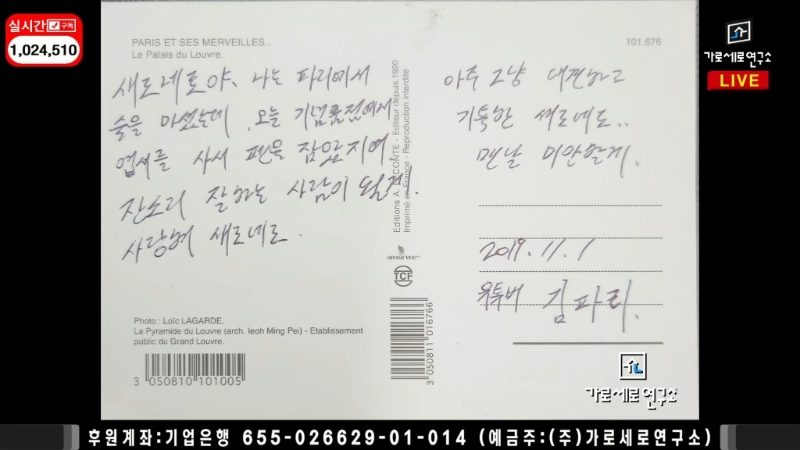 실시간 구독
1,024,510
가로세로연구소
LIVE
PARIS ET SES MERVEILLES...
Le Palais du Louvre.
101.676
새로네로야, 나는 파리에서
술을 마셨는데, 오늘 기념품점에서
엽서를 사서 펜을 잡았지여.
잔소리 잘하는 사람이 될게.
사랑해 새로네로.
아주 그냥 대견하고
기특한 새로네로..
맨날 미안할게.
2019.11.1
유투버 김파리.
Editions A. LECONTE - Editeur depuis 1920
Imprimé en France - Reproduction interdite
IMPRIM'VERT
TCF
Photo : Loïc LAGARDE.
La Pyramide du Louvre (arch. Ieoh Ming Pei) - Etablissement
public du Grand Louvre.
3 050810 101005
3 050811 016766
가로세로연구소
후원계좌:기업은행 655-026629-01-014 (예금주:(주)가로세로연구소)